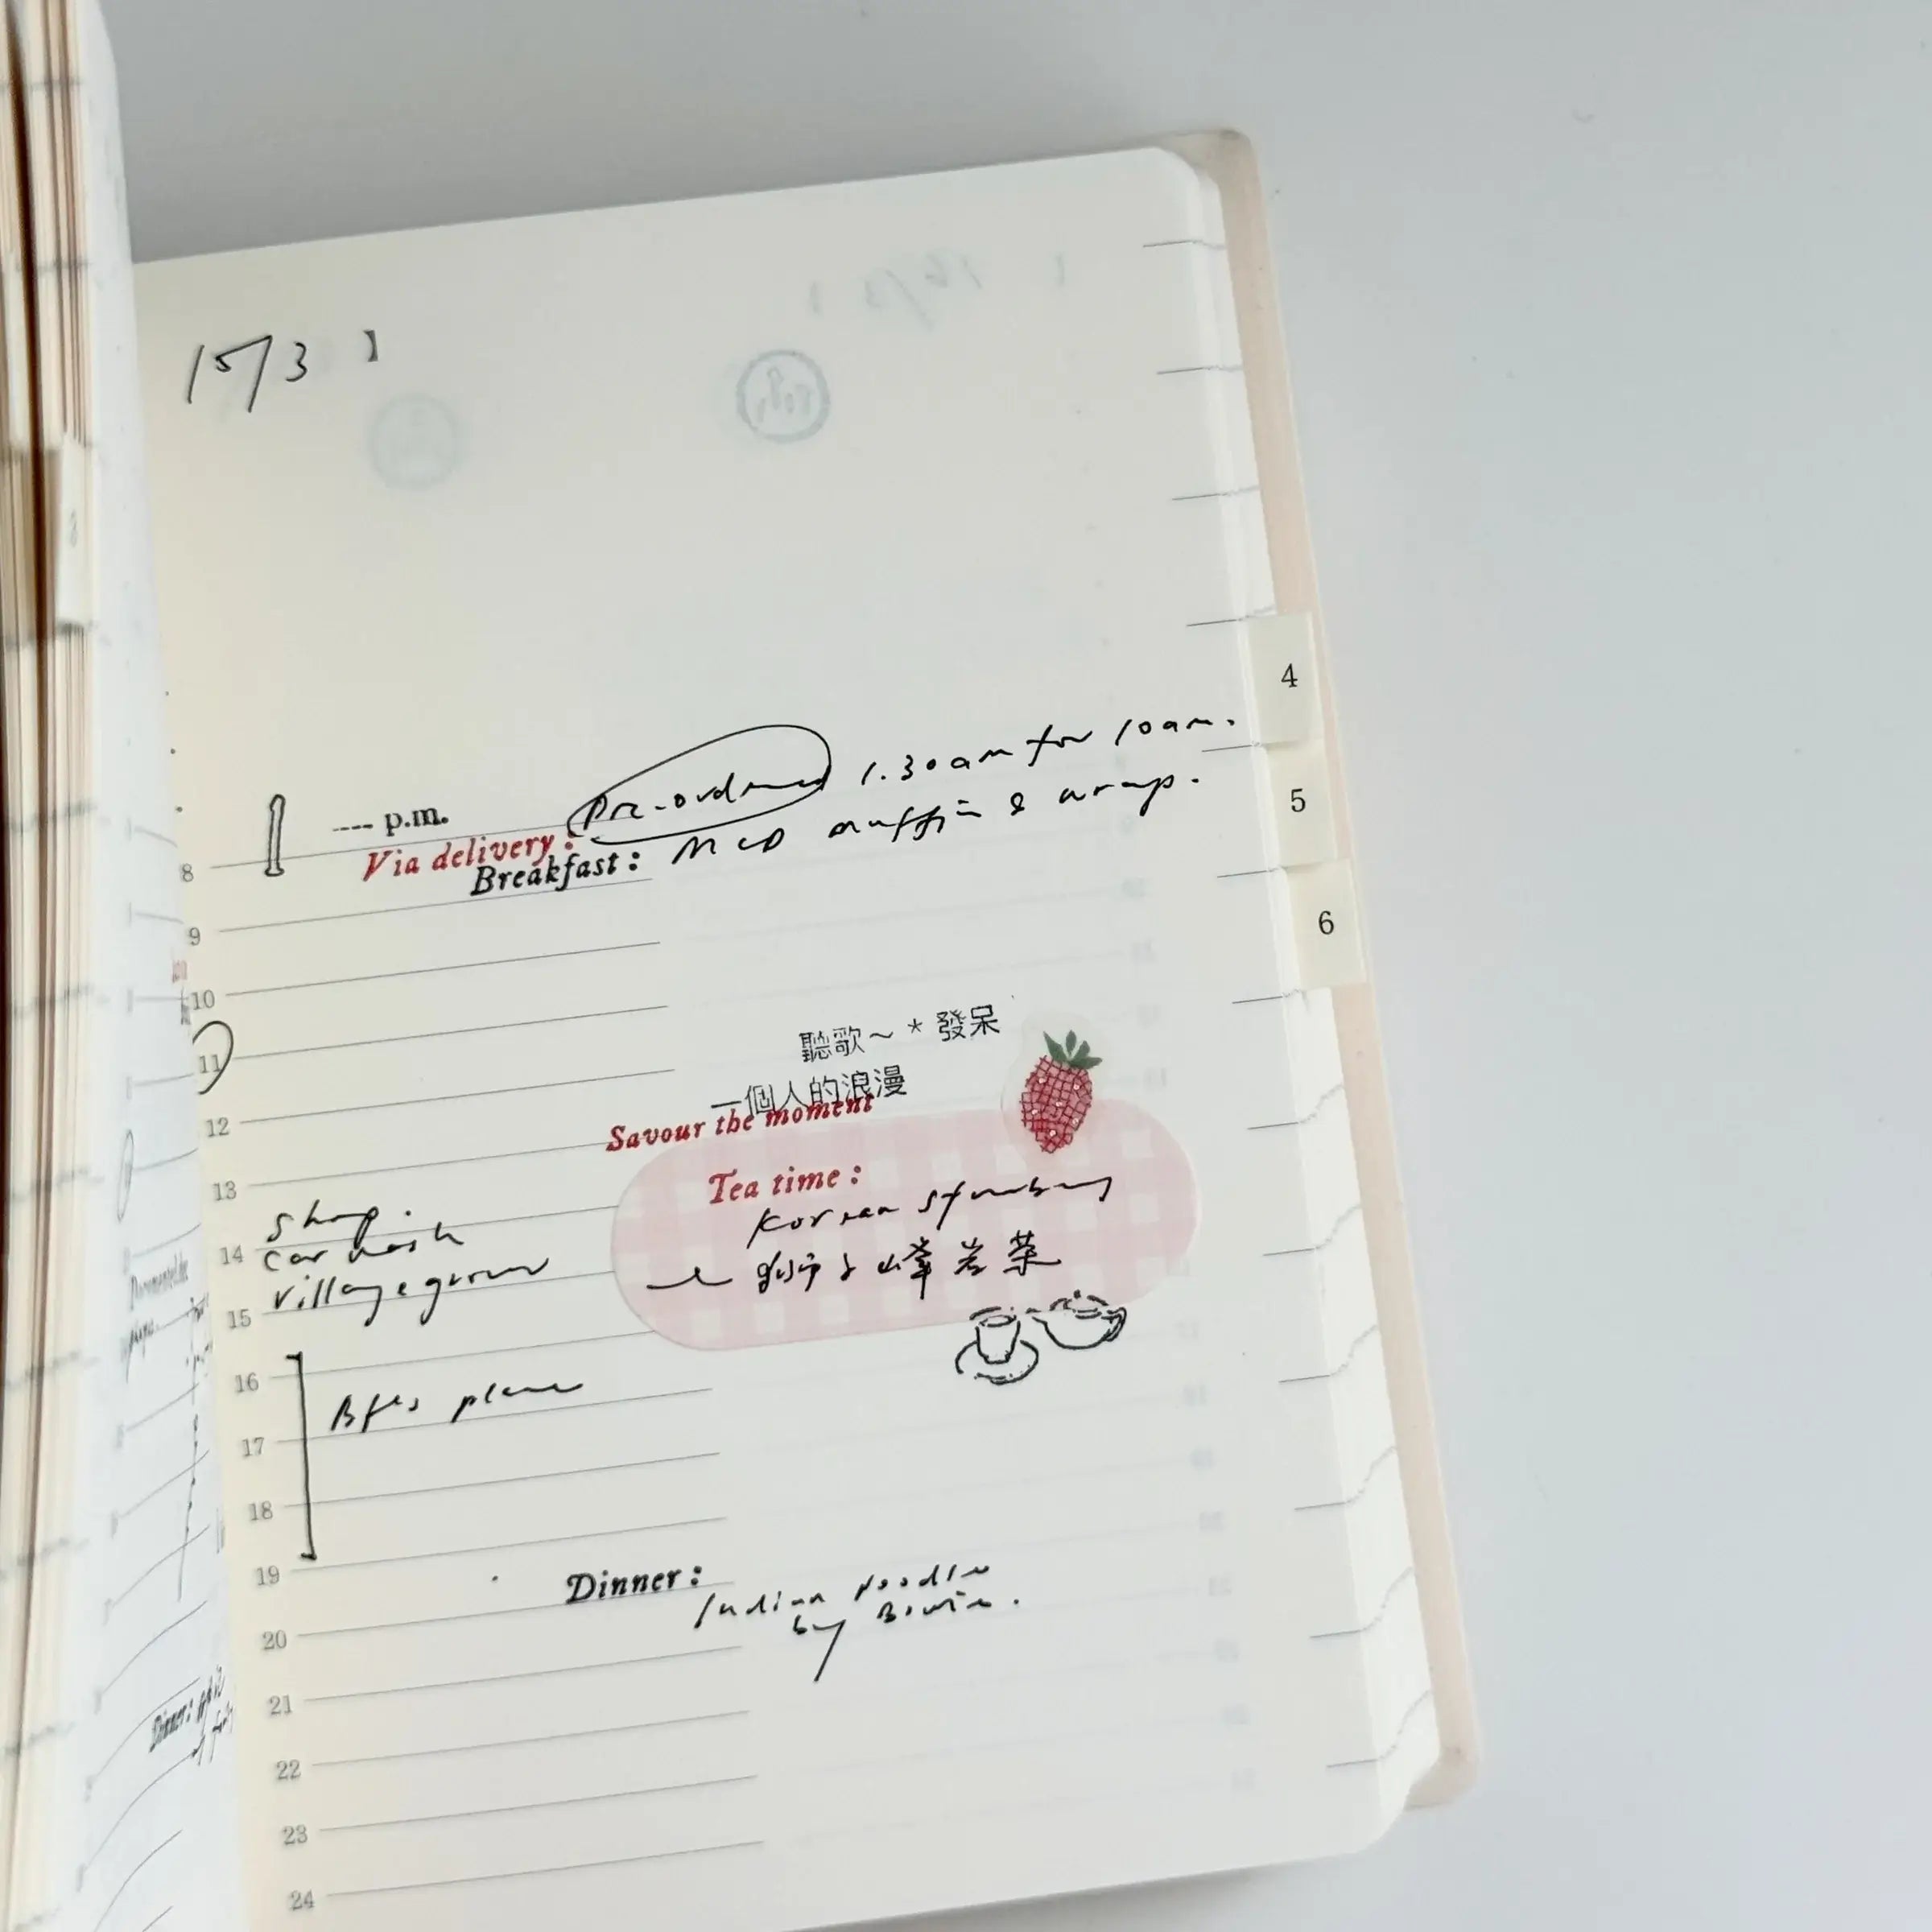 15/3 】
4
5
6
---- p.m.
Via delivery : Pre-ordered 1.30am for 10am.
Breakfast : McD muffin & wrap.
8
9
10
11
12
13
14
15
16
17
18
19
20
21
22
23
24
聽歌～ * 發呆
一個人的浪漫
Savour the moment
Tea time :
Korean strawberry
獅子峰岩茶
Shop.
car wash
village grocer
Bf's place
Dinner : Indian Noodle
by Bowie.
Dinner :